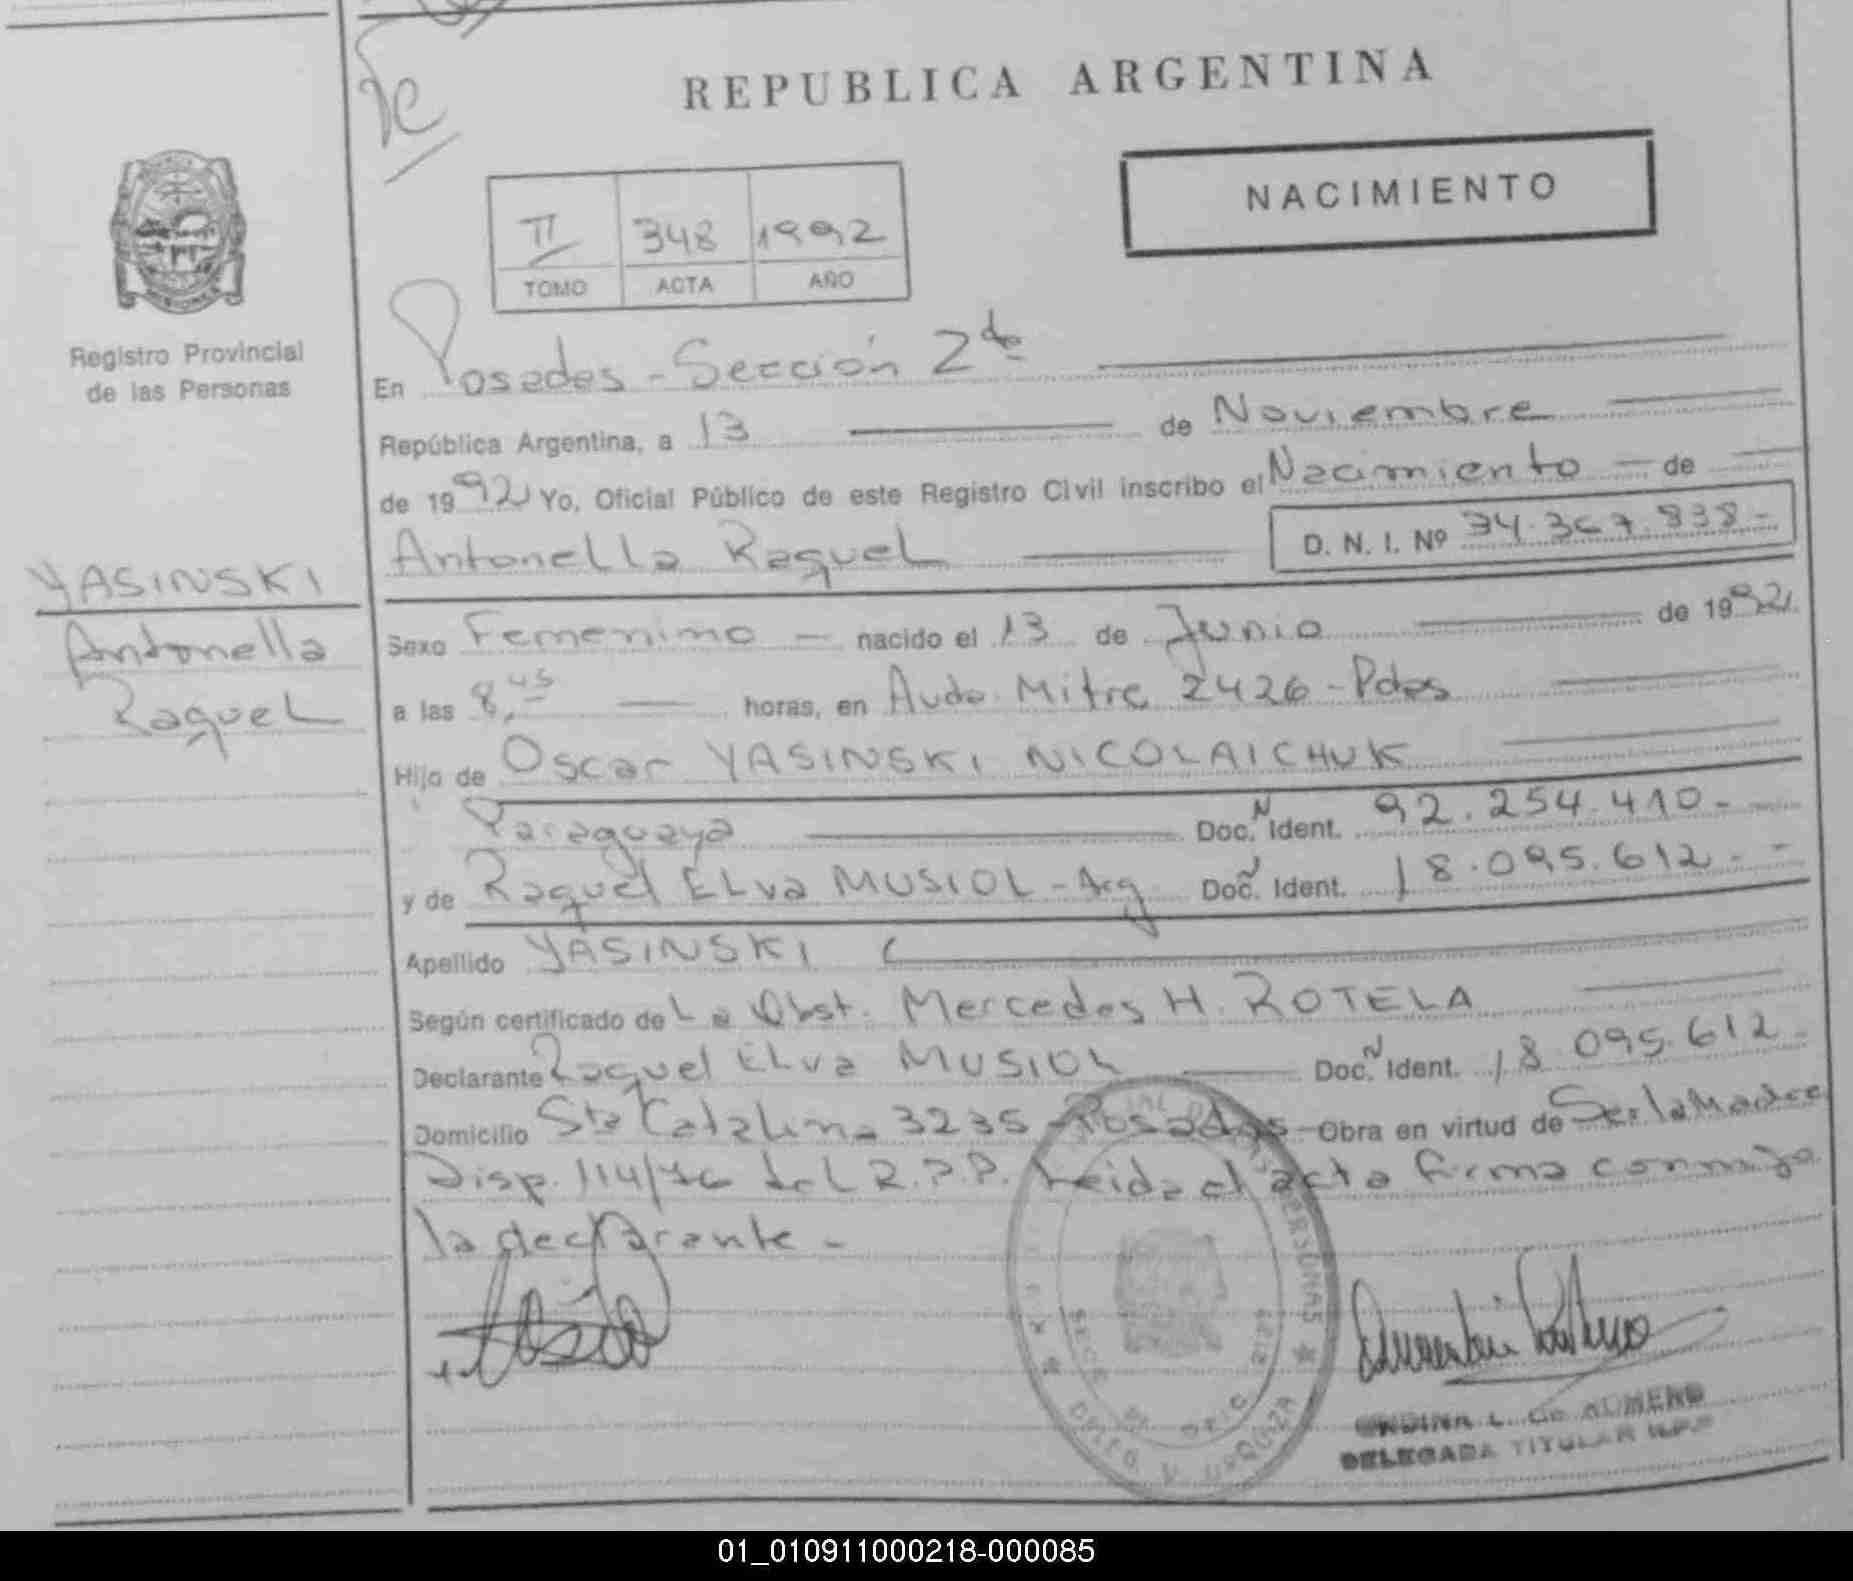 REPUBLICA ARGENTINA
NACIMIENTO
II 348 1992
TOMO ACTA AÑO
Registro Provincial
de las Personas
YASINSKI
Antonella
Raquel
En Posadas - Sección 2da
República Argentina, a 13 de Noviembre
de 1992 Yo, Oficial Público de este Registro Civil inscribo el Nacimiento - de
Antonella Raquel D. N. I. Nº 34.367.838-
Sexo Femenino - nacido el 13 de Junio de 1992
a las 8,45 horas, en Avda. Mitre 2426 - Pdas
Hijo de Oscar YASINSKI NICOLAICHUK
Paraguaya Doc. N Ident. 92.254.410-
y de Raquel ELva MUSIOL - Arg Doc. N Ident. 18.095.612- -
Apellido YASINSKI
Según certificado de La Obst. Mercedes H. ROTELA
Declarante Raquel ELva MUSIOL Doc. N Ident. 18.095.612-
Domicilio Sta Catalina 3235 - Posadas - Obra en virtud de Ser la Madre
Disp. 114/76 del R.P.P. Leida el acta firma conmigo
la declarante -
DE LAS PERSONAS
URQUIZA
L. de ROMERO
DELEGADA TITULAR R.P.P
01_010911000218-000085